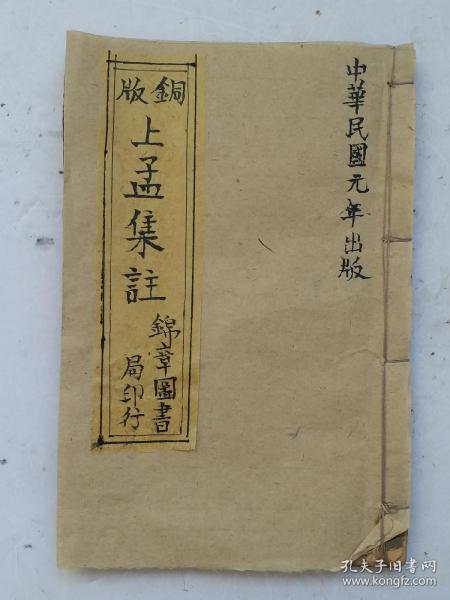 中華民國元年出版
銅版
上孟集註
錦章圖書
局印行
孔夫子旧书网
www.kongfz.com